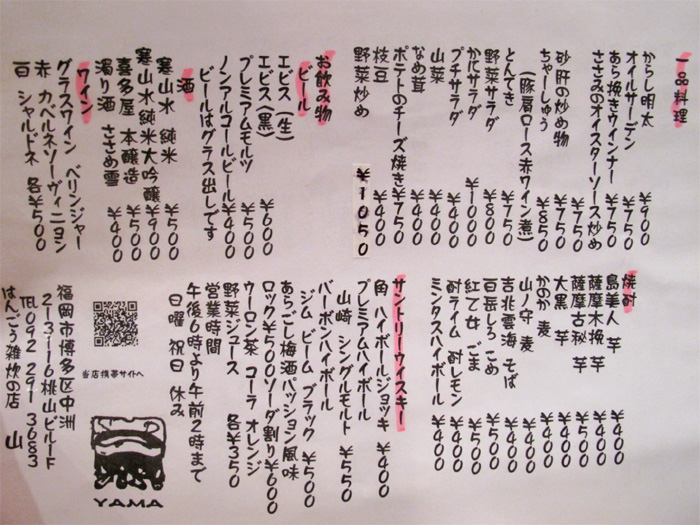 一品料理
からし明太 ¥900
オイルサーデン ¥750
あら挽きウインナー ¥750
ささみのオイスターソース炒め ¥750
砂肝の炒め物 ¥750
ちゃーしゅう ¥850
(豚肩ロース赤ワイン煮)
とんてき ¥750
野菜サラダ ¥800
かルサラダ ¥1000
プチサラダ ¥400
山菜 ¥400
なめ茸 ¥400
ポテトのチーズ焼き ¥750
枝豆 ¥400
野菜炒め ¥1050
お飲み物
ビール
エビス(生)
エビス(黒) ¥600
プレミアムモルツ ¥500
ノンアルコールビール ¥400
ビールはグラス出しです
酒
寒山水 純米 ¥500
寒山水純米大吟醸 ¥900
喜多屋 本醸造 ¥500
濁り酒 ささめ雪 ¥400
ワイン
グラスワイン ベリンジャー
赤 カベルネソーヴィニヨン
白 シャルドネ 各¥500
焼酎
島美人 芋 ¥400
薩摩木挽 芋 ¥400
薩摩古秘 芋 ¥400
大黒 芋 ¥500
かのか 麦 ¥400
山ノ守 麦 ¥400
吉兆雲海 そば ¥400
百岳しょう こめ ¥500
紅乙女 ごま ¥500
酎ライム 酎レモン ¥400
ミンタスハイボール ¥400
サントリーウィスキー
角 ハイボールジョッキ ¥400
プレミアムハイボール
山崎 シングルモルト ¥550
バーボンハイボール
ジム ビーム ブラック ¥500
あらごし梅酒パッション風味
ロック¥500ソーダ割り¥600
ウーロン茶 コーラ オレンジ
野菜ジュース 各¥350
営業時間
午後6時より午前2時まで
日曜 祝日 休み
当店携帯サイトへ
YAMA
福岡市博多区中洲
2-3-16桃山ビル1F
TEL092 291 3683
はんごう雑炊の店 山